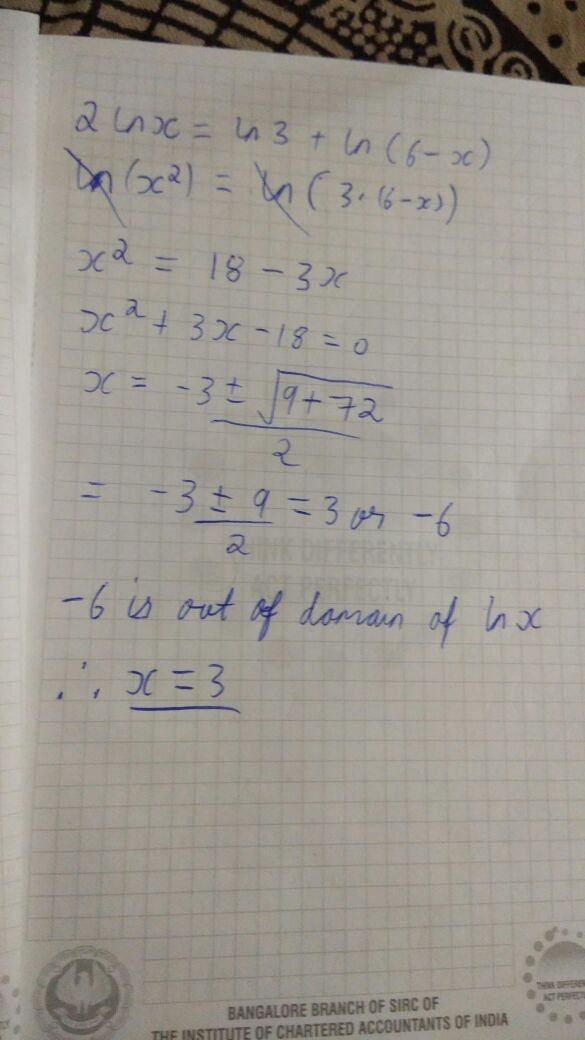 2 ln x = ln 3 + ln (6 - x)
ln (x²) = ln ( 3 · (6 - x))
x² = 18 - 3x
x² + 3x - 18 = 0
x = -3 ± √9 + 72
2
= -3 ± 9 = 3 or -6
2
THINK DIFFERENTLY
ACT PERFECTLY
-6 is out of domain of ln x
∴ x = 3
THINK DIFFEREN
ACT PERFECT
BANGALORE BRANCH OF SIRC OF
THE INSTITUTE OF CHARTERED ACCOUNTANTS OF INDIA